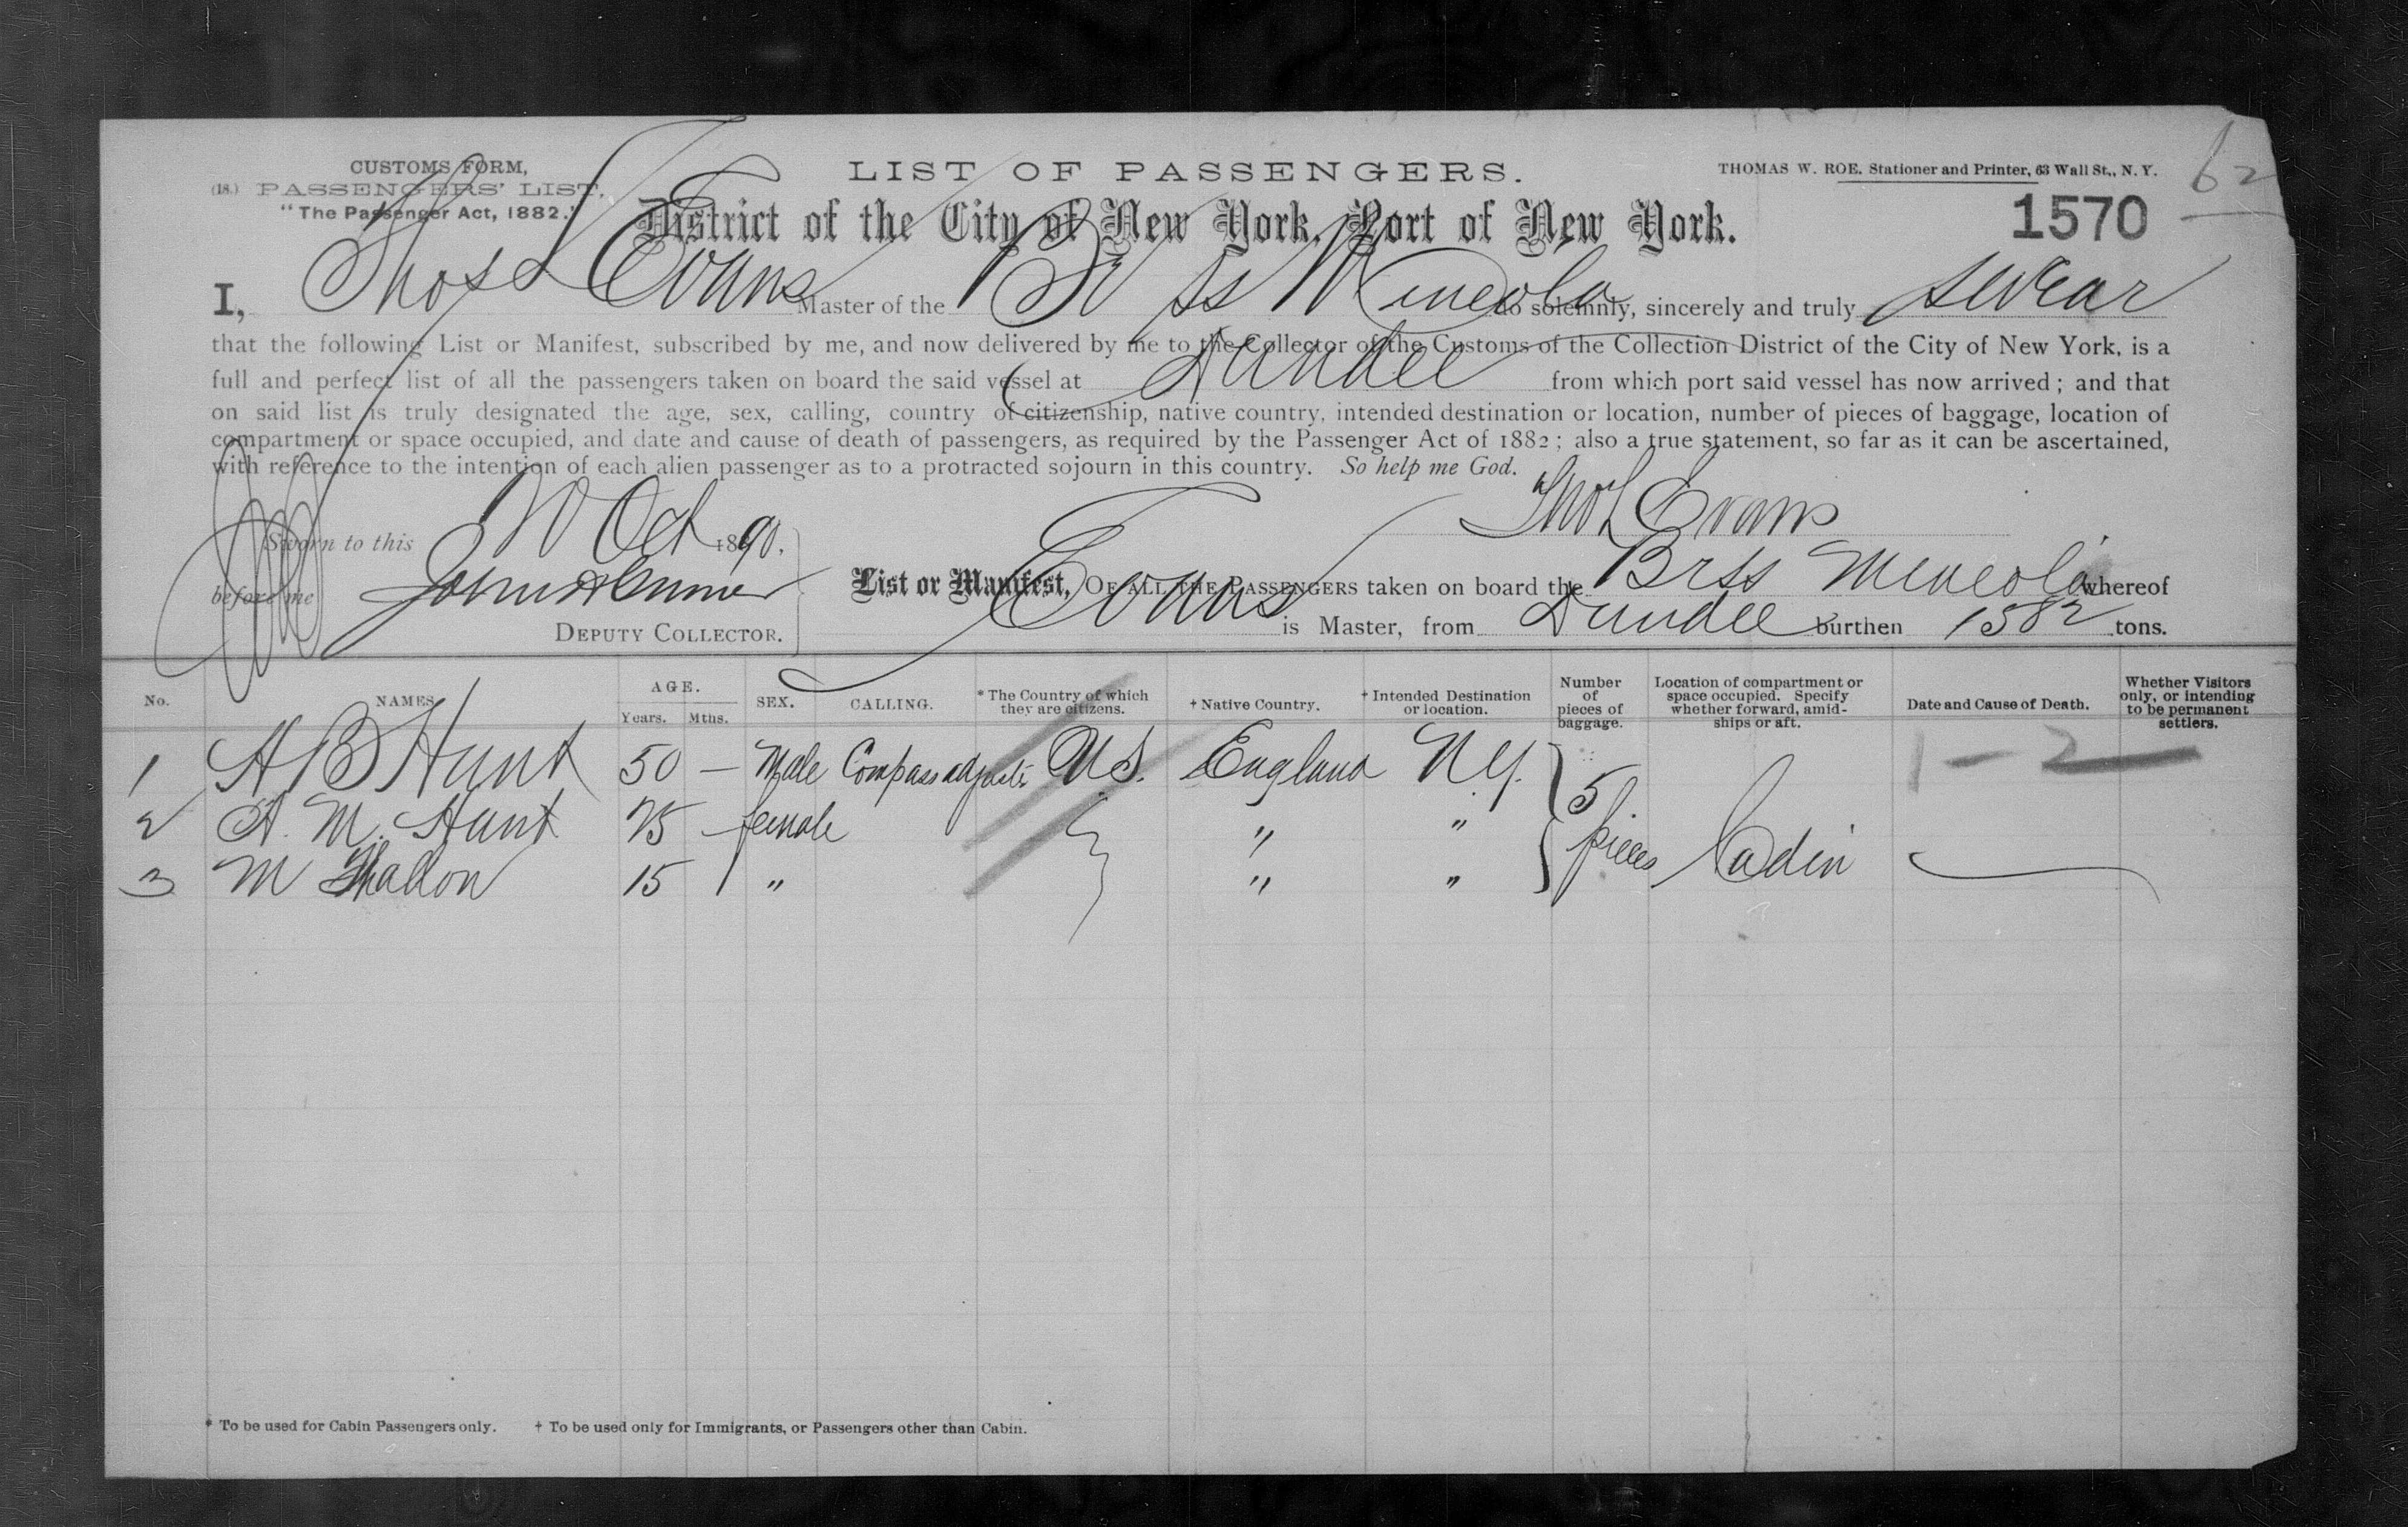 CUSTOMS FORM,
(18.) PASSENGERS' LIST.
"The Passenger Act, 1882."
LIST OF PASSENGERS.
THOMAS W. ROE, Stationer and Printer, 63 Wall St., N. Y.
62
District of the City of New York, Port of New York.
1570
I, Thos L Evans Master of the Br SS Mineola do solemnly, sincerely and truly swear
that the following List or Manifest, subscribed by me, and now delivered by me to the Collector of the Customs of the Collection District of the City of New York, is a
full and perfect list of all the passengers taken on board the said vessel at Dundee from which port said vessel has now arrived; and that
on said list is truly designated the age, sex, calling, country of citizenship, native country, intended destination or location, number of pieces of baggage, location of
compartment or space occupied, and date and cause of death of passengers, as required by the Passenger Act of 1882; also a true statement, so far as it can be ascertained,
with reference to the intention of each alien passenger as to a protracted sojourn in this country. So help me God.
Thos L Evans
Sworn to this 10 Oct 1890.
before me
DEPUTY COLLECTOR.
List or Manifest, OF ALL THE PASSENGERS taken on board the Br SS Mineola whereof
Evans is Master, from Dundee burthen 1582 tons.
No. NAMES. AGE. Years. Mths. SEX. CALLING. * The Country of which they are citizens. † Native Country. † Intended Destination or location. Number of pieces of baggage. Location of compartment or space occupied. Specify whether forward, amidships or aft. Date and Cause of Death. Whether Visitors only, or intending to be permanent settlers.
1 A B Hunt 50 — Male Compass adjuster U S. England N Y. 5 pieces Cabin
2 A. M. Hunt 25 — female " "
3 M 15 " " "
1 - 2
* To be used for Cabin Passengers only. † To be used only for Immigrants, or Passengers other than Cabin.